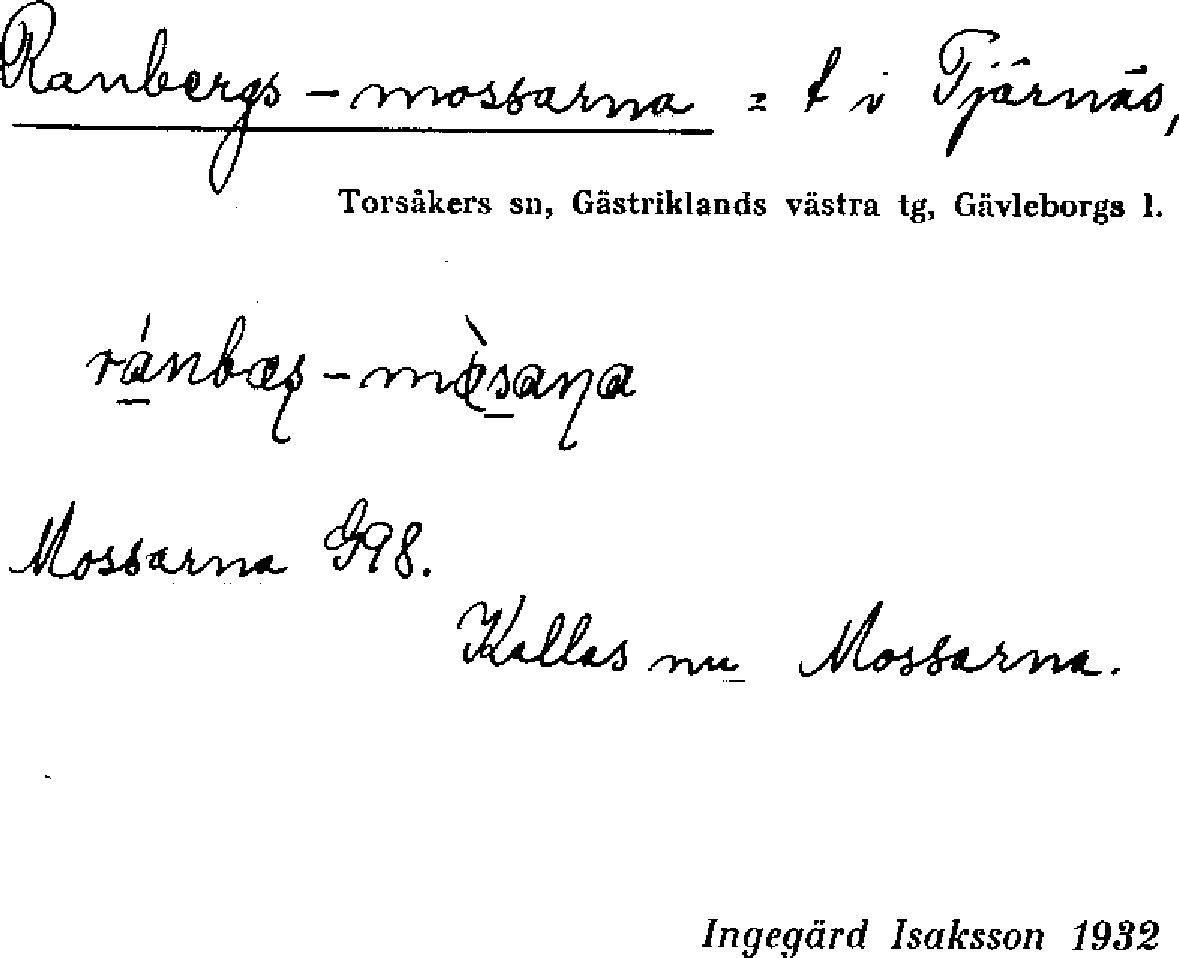 Ranbergs-mossarna = t i Tjärnäs,
Torsåkers sn, Gästriklands västra tg, Gävleborgs l.
Mossarna G98.
Kallas nu Mossarna.
Ingegärd Isaksson 1932